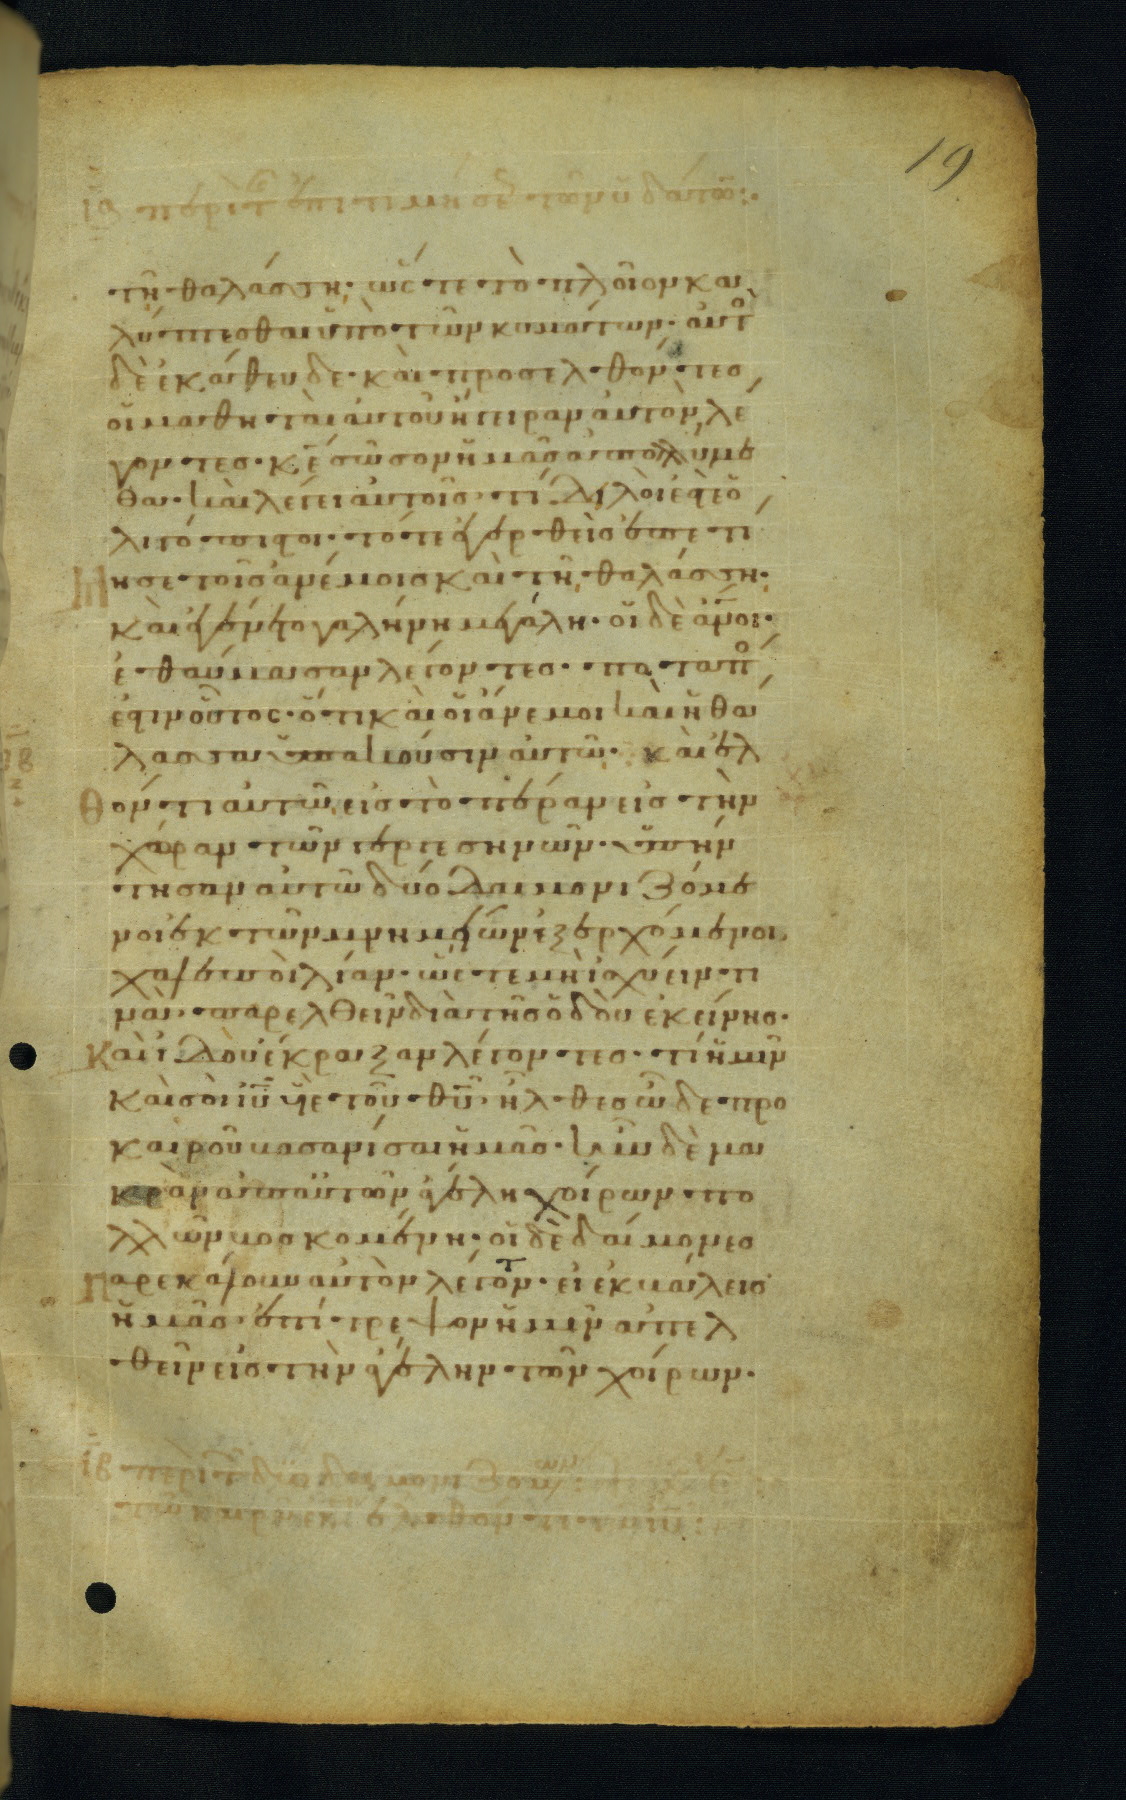 19
ια περι τ επιτιμησε των υδατω:
τῆ θαλάσση· ὥστε τὸ πλοῖον κα
λύπτεσθαι ὑπὸ τῶν κυμάτων· αυτο
δὲ ἐκάθευδε· καὶ προσελθόντες
οἱ μαθηταὶ αὐτοῦ ἤγειραν αὐτὸν λέ
γοντες· κε σῶσον ἡμᾶς ἀπολλύμε
θα· καὶ λέγει αὐτοῖς· τί δειλοί ἐστε ὀ
λιγόπιστοι· τότε ἐγερθεὶς ἐπετί
μησε τοῖς ἀνέμοις καὶ τῆ θαλάσση·
καὶ ἐγένετο γαλήνη μεγάλη· οἱ δὲ ανοι·
ἐθαύμασαν λέγοντες· ποταπο
ἐστιν οὗτος· ὅτι καὶ οἱ ἄνεμοι καὶ ἡ θά
λασσα ὑπακούουσιν αὐτῶ· καὶ ἐλ
θόντι αὐτῶ εἰς τὸ πέραν εἰς τὴν
χώραν τῶν γεργεσηνῶν· ὑπήν
τησαν αὐτῶ δύο δαιμονιζόμε
νοι ἐκ τῶν μνημείων ἐξερχόμενοι
χαλεποὶ λίαν· ὥστε μὴ ἰσχύειν τι
νὰ παρελθεῖν διὰ τῆς ὁδοῦ ἐκείνης·
καὶ ἰδοὺ ἔκραξαν λέγοντες· τί ἡμῖν
καὶ σοὶ ιυ υἱὲ τοῦ θυ ἦλθες ὧδε προ
καιροῦ βασανίσαι ἡμᾶς· ἦν δὲ μα
κρὰν ἀπ' αὐτῶν ἀγέλη χοίρων πο
λλῶν βοσκομένη· οἱ δὲ δαίμονες
παρεκάλουν αὐτὸν λέγοντ· εἰ ἐκβάλεις
ἡμᾶς· ἐπίτρεψον ἡμῖν ἀπελ
θεῖν εἰς τὴν ἀγέλην τῶν χοίρων·
ιβ περι τ δυο δαιμονιζομ
τω καιρω εκει ελθοντι τω ιυ: